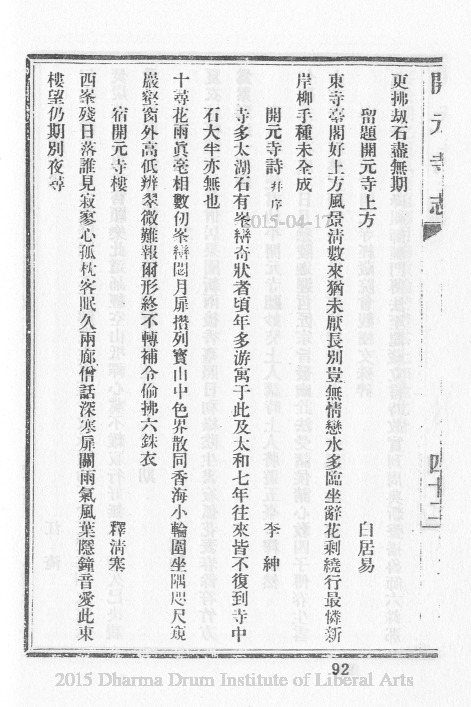 開元寺志
四十二
更拂刼石盡無期
留題開元寺上方　白居易
東寺臺閣好上方風景淸數來猶未厭長別豈無情戀水多臨坐辭花剩繞行最憐新
岸柳手種未全成
開元寺詩 幷序　李紳
寺多太湖石有峯巒奇狀者頃年多游寓于此及太和七年往來皆不復到寺中
石大半亦無也
十尋花雨眞毫相數仞峯巒閟月扉攢列寶山中色界散同香海小輪圍坐隅咫尺窺
巖壑窗外高低辨翠微難報爾形終不轉補令偷拂六銖衣
宿開元寺樓　釋淸塞
西峯殘日落誰見寂寥心孤枕客眠久兩廊僧話深寒扉關雨氣風葉隱鐘音愛此東
樓望仍期別夜尋
2015-04-17
92
2015 Dharma Drum Institute of Liberal Arts